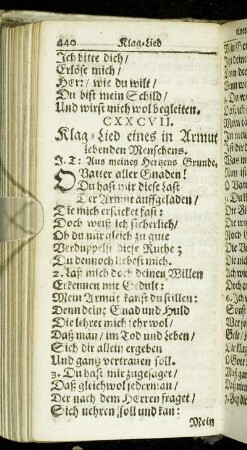 440 Klag-Lied
Ich bitte dich /
Erlöse mich /
HErr / wie du wilt /
Du bist mein Schild /
Und wirst mich wol begleiten.
CXXCVII.
Klag-Lied eines in Armut
lebenden Menschens.
J. T: Aus meines Hertzens Grunde.
O Vatter aller Gnaden!
Du hast mir diese Last
Der Armut auffgeladen /
Die mich ersticket fast:
Doch weiß ich sicherlich /
Ob du mir gleich zu gute
Verduppelst diese Ruthe;
Du dennoch liebest mich.
2. Laß mich doch deinen Willen
Erkennen mit Gedult:
Mein Armut kanst du stillen:
Denn deine Gnad und Huld
Die lehret mich sehr wol /
Daß man / im Tod und Leben /
Sich dir allein ergeben
Und gantz vertrauen soll.
3. Du hast mir zugesaget /
Daß gleichwol jederman /
Der nach dem HErren fraget /
Sich nehren soll und kan:
Mein